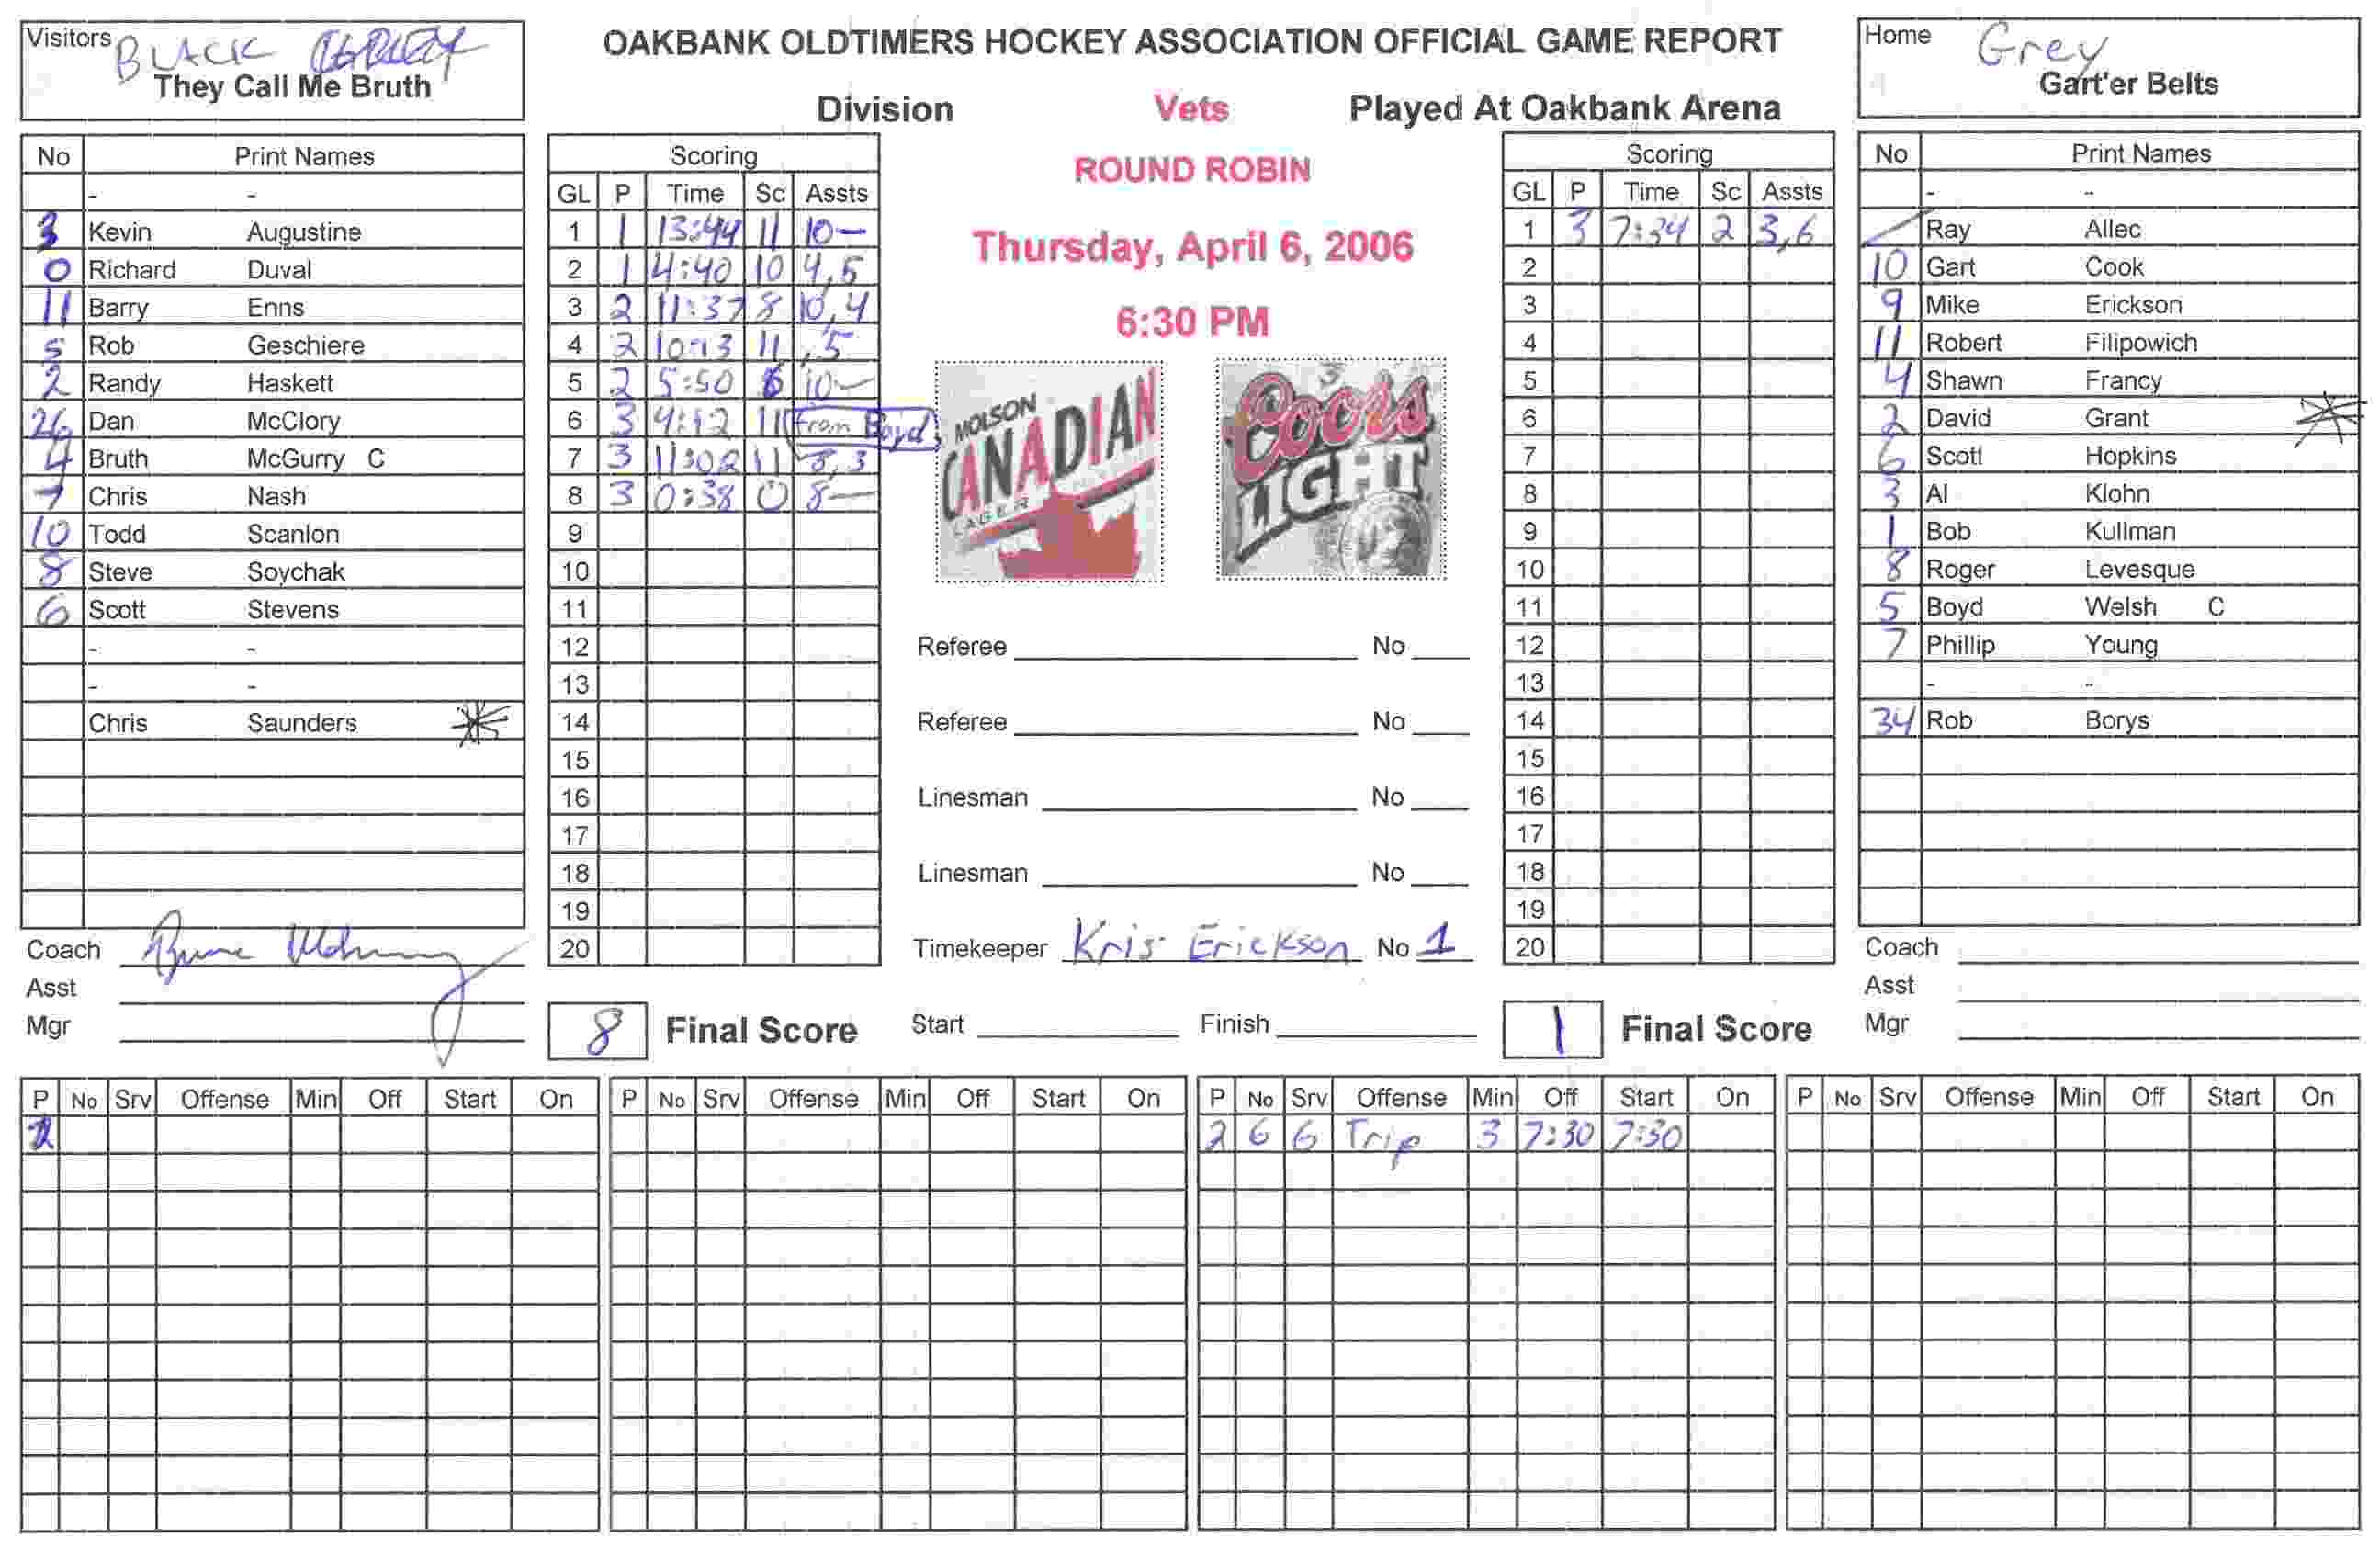 Visitors BLACK
They Call Me Bruth
OAKBANK OLDTIMERS HOCKEY ASSOCIATION OFFICIAL GAME REPORT
Division Vets Played At Oakbank Arena
ROUND ROBIN
Thursday, April 6, 2006
6:30 PM
Home Grey
Gart'er Belts
No Print Names
- -
3 Kevin Augustine
0 Richard Duval
11 Barry Enns
5 Rob Geschiere
2 Randy Haskett
26 Dan McClory
4 Bruth McGurry C
7 Chris Nash
10 Todd Scanlon
8 Steve Soychak
6 Scott Stevens
- -
- -
Chris Saunders
Coach
Asst
Mgr
Scoring
GL P Time Sc Assts
1 1 13:44 11 10 —
2 1 4:40 10 4,5
3 2 11:37 8 10,4
4 2 10:13 11 ,5
5 2 5:50 6 10 —
6 3 4:12 11 from Boyd
7 3 11:02 11 8,3
8 3 0:38 0 8 —
9
10
11
12
13
14
15
16
17
18
19
20
8 Final Score
MOLSON
CANADIAN
LAGER
Coors
LIGHT
Referee No
Referee No
Linesman No
Linesman No
Timekeeper Kris Erickson No 1
Start Finish
Scoring
GL P Time Sc Assts
1 3 7:34 2 3,6
2
3
4
5
6
7
8
9
10
11
12
13
14
15
16
17
18
19
20
1 Final Score
No Print Names
- -
Ray Allec
10 Gart Cook
9 Mike Erickson
11 Robert Filipowich
4 Shawn Francy
2 David Grant
6 Scott Hopkins
3 Al Klohn
1 Bob Kullman
8 Roger Levesque
5 Boyd Welsh C
7 Phillip Young
- -
34 Rob Borys
Coach
Asst
Mgr
P No Srv Offense Min Off Start On
P No Srv Offense Min Off Start On
P No Srv Offense Min Off Start On
2 6 6 Trip 3 7:30 7:30
P No Srv Offense Min Off Start On